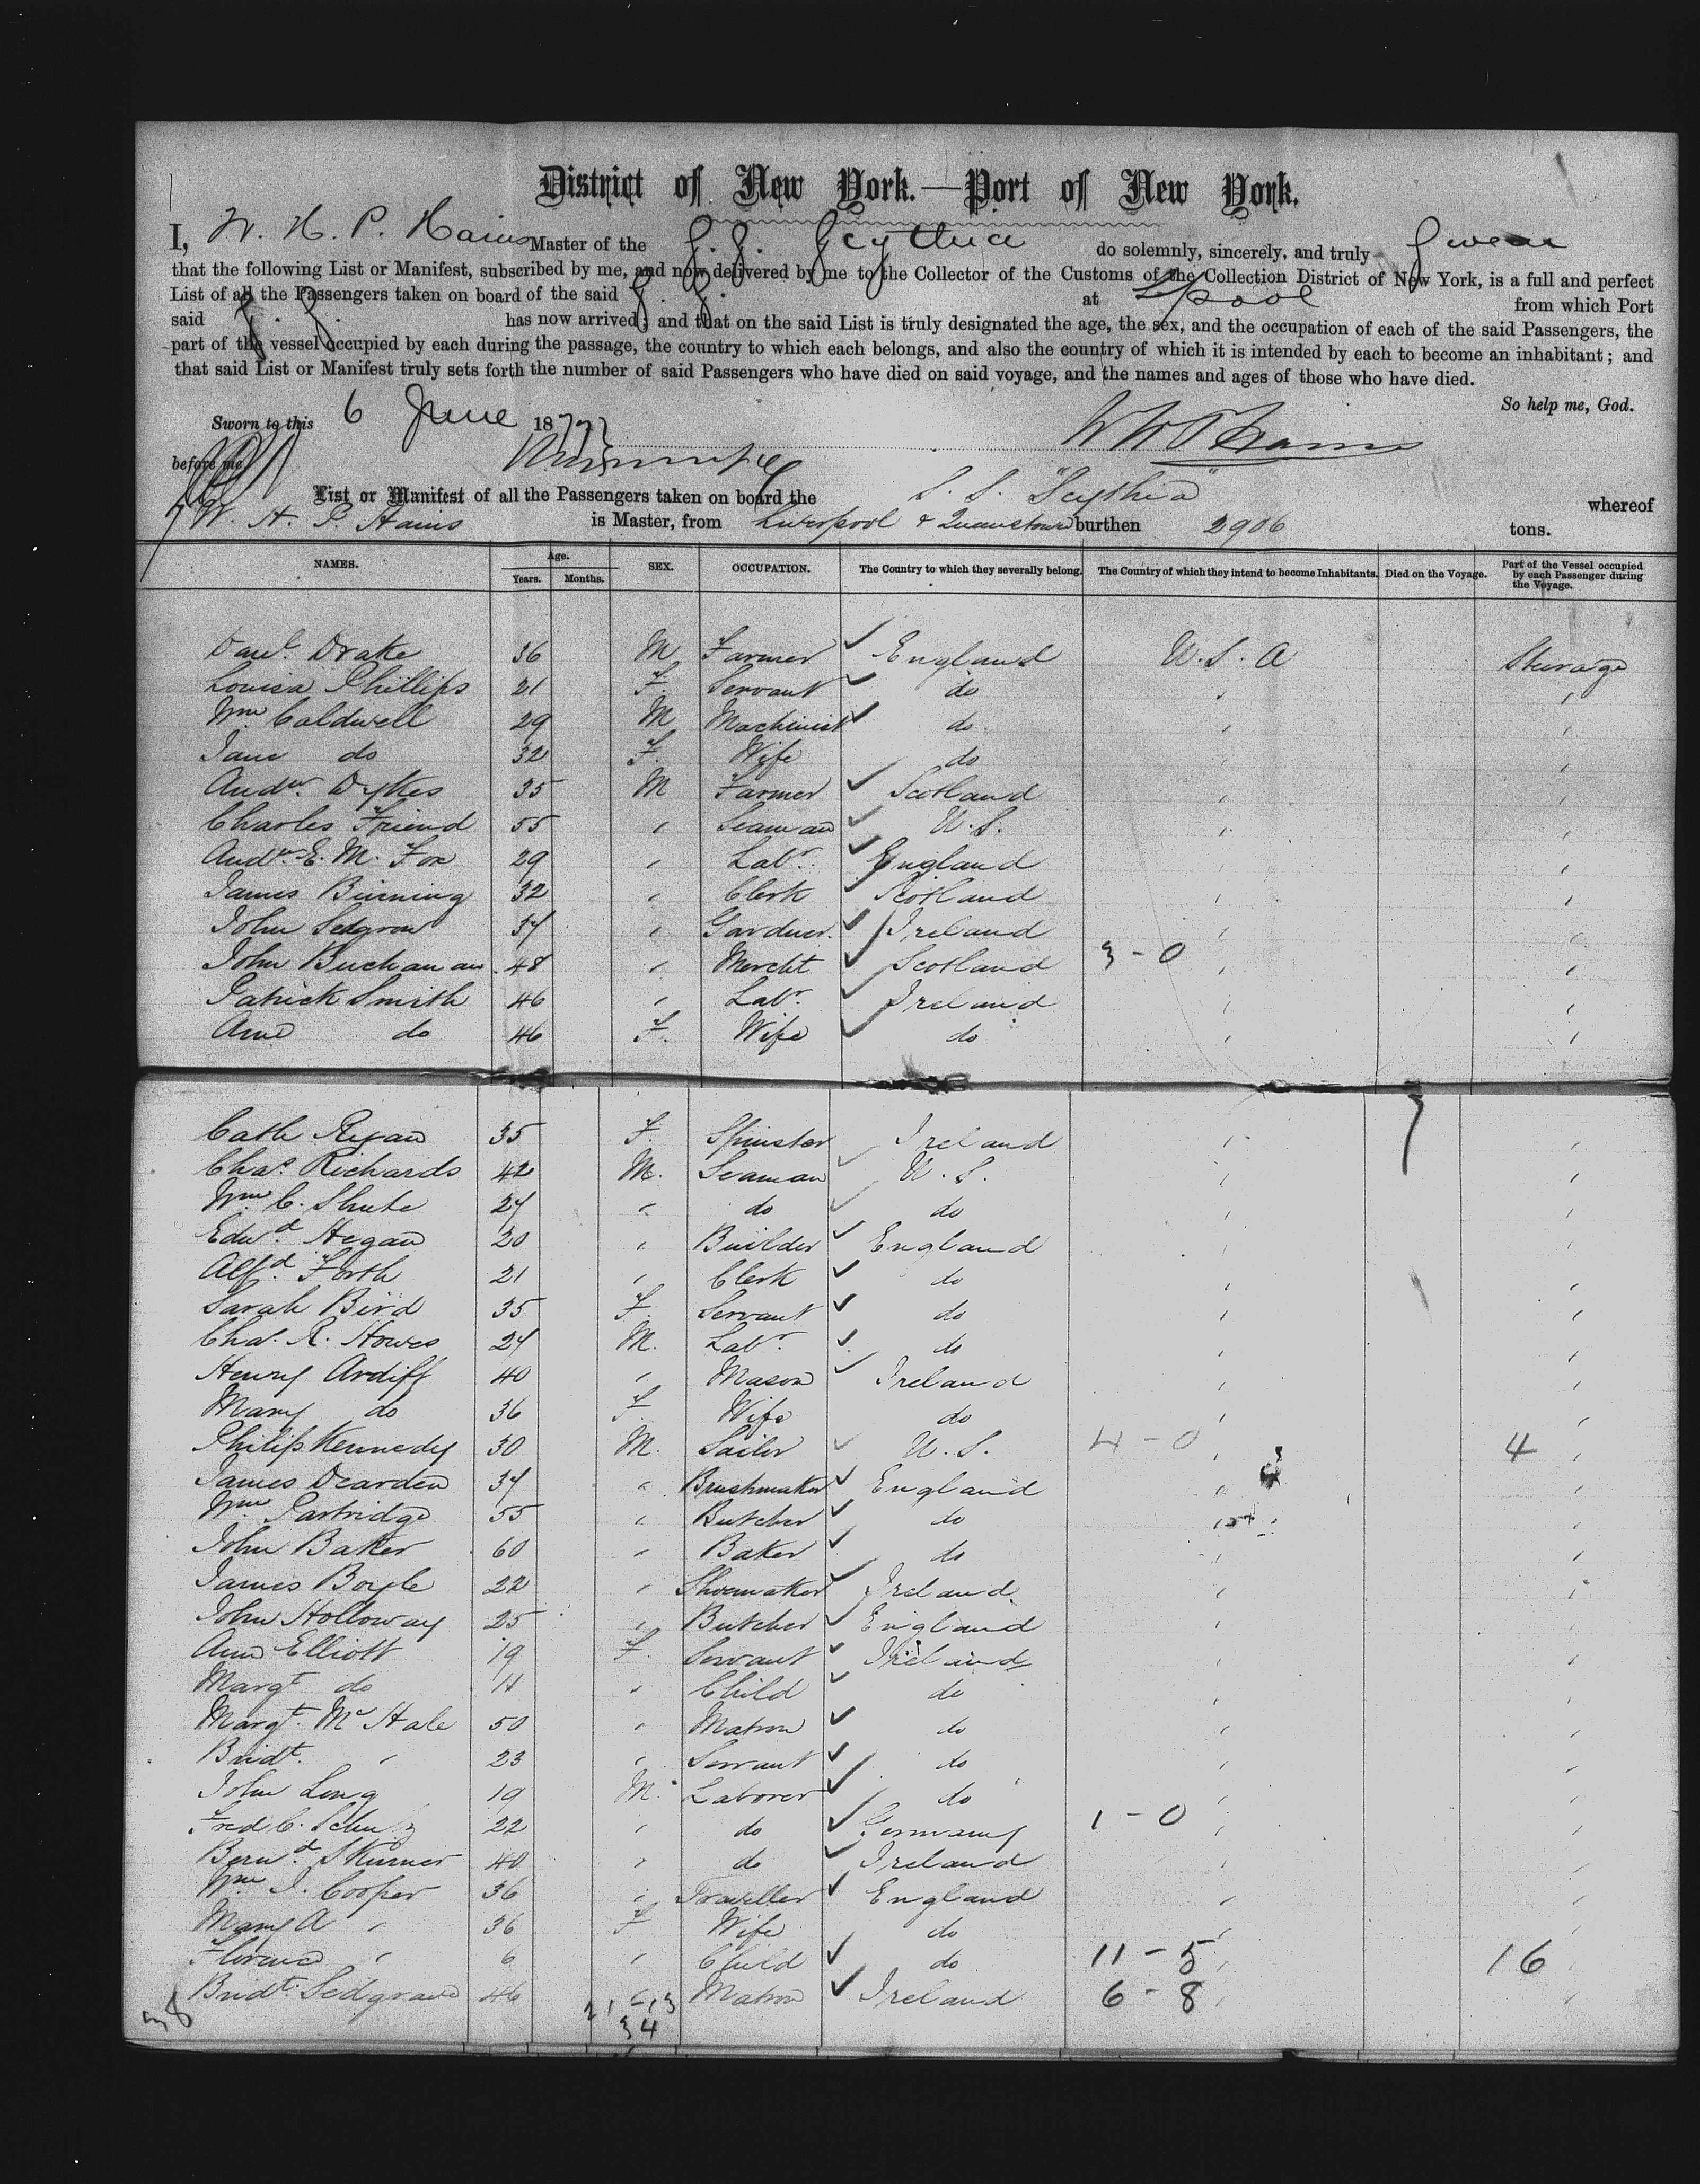 District of New York.—Port of New York.
I, W. H. P. Hains Master of the S. S. Scythia do solemnly, sincerely, and truly Swear
that the following List or Manifest, subscribed by me, and now delivered by me to the Collector of the Customs of the Collection District of New York, is a full and perfect
List of all the Passengers taken on board of the said S. S. at L'pool from which Port
said S. S. has now arrived; and that on the said List is truly designated the age, the sex, and the occupation of each of the said Passengers, the
part of the vessel occupied by each during the passage, the country to which each belongs, and also the country of which it is intended by each to become an inhabitant; and
that said List or Manifest truly sets forth the number of said Passengers who have died on said voyage, and the names and ages of those who have died.
So help me, God.
Sworn to this 6 June 1877 W H P Hains
before me
List or Manifest of all the Passengers taken on board the S. S. "Scythia" whereof
W. H. P. Hains is Master, from Liverpool & Queenstown burthen 2906 tons.
NAMES. Age. Years. Months. SEX. OCCUPATION. The Country to which they severally belong. The Country of which they intend to become Inhabitants. Died on the Voyage. Part of the Vessel occupied by each Passenger during the Voyage.
Danl. Drake 36 M Farmer England U. S. A Sterage
Louisa Phillips 21 F. Servant do "
Wm Caldwell 29 M Machinist do "
Jane do 32 F. Wife do "
Andw. Dykes 35 M Farmer Scotland "
Charles Friend 55 " Seaman U. S. "
Andw. E. M. Fox 29 " Labr. England "
James Binning 32 " Clerk Scotland "
John Sedgrow 34 " Gardner. Ireland "
John Buchanan 48 " Mercht. Scotland 3 - 0 "
Patrick Smith 46 " Labr. Ireland "
Ann do 46 F. Wife do "
Cath Regan 35 F. Spinster Ireland "
Chas. Richards 42 M. Seaman U. S. "
Wm C. Shute 24 " do do "
Edwd. Hegan 20 " Builder England "
Alfd. Forth 21 " Clerk do "
Sarah Bird 35 F. Servant do "
Chas. R. Howes 24 M. Labr. do "
Henry Ardiff 40 " Mason Ireland "
Mary do 36 F. Wife do "
Philip Kennedy 30 M. Sailor U. S. 4 - 0 4 "
James Dearden 34 " Brushmaker England "
Wm Partridge 55 " Butcher do "
John Baker 60 " Baker do "
James Boyle 22 " Shoemaker Ireland "
John Holloway 25 " Butcher England "
Ann Elliott 19 F. Servant Ireland "
Margt do 11 " Child do "
Margt. McHale 50 " Matron do "
Bridt. " 23 " Servant do "
John Long 19 M. Laborer do "
Fred C. 22 " do Germany 1 - 0 "
Bernd. Skinner 40 " do Ireland "
Wm J. Cooper 36 " Traveller England "
Mary A " 36 F Wife do "
Florence " 6 " Child do 11 - 5 16 "
Bridt. Sedgrave 46 " Matron Ireland 6 - 8 "
21 - 13
34